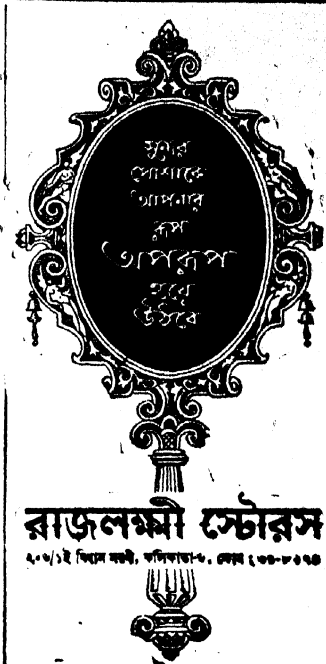 সুন্দর
পোশাকে
আপনার
রূপ
অপরূপ
হয়ে
উঠবে
রাজলক্ষ্মী স্টোরস
২০৬/১ই বিধান সরণী, কলিকাতা-৬,